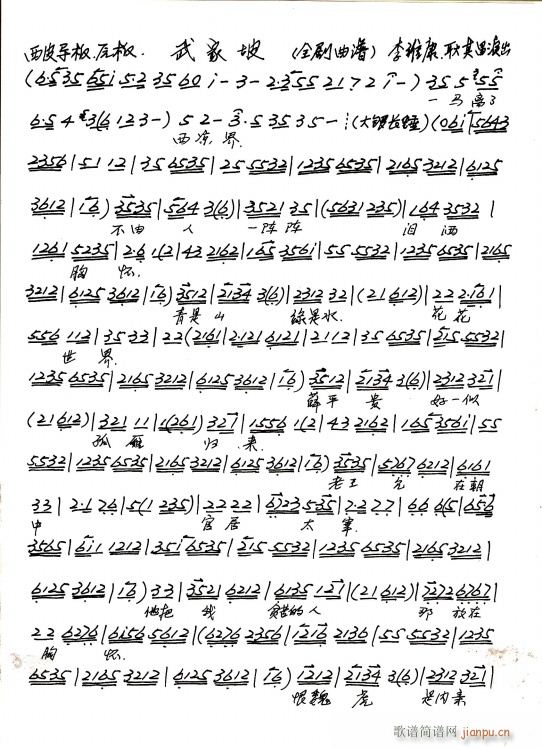 西皮导板.原板. 武家坡 (全剧曲谱) 李维康.耿其昌演出
(6·535 6551 5·2 35 60 i-3-2·355 2172 i-) 35 5 355
一 马 离了
6·5 4 #3(6 123-) 5 2-3·5 35 35-(大锣长锤)(06i|5643
西凉界.
2356|51 12|35 6535|25 5532|1235 6535|2165 3212|6125
3612|16) 3535|564 3(6)|3521 35|(5631 235)|164 3532|
不由 人 一阵阵 泪洒
1261 5235|2·6 1(2|43 2162|165 356i|55 5532|1235 6535|2165
胸 怀.
3212|6125 3612|16) 3512|2134 3(6)|2312 32|(21 612)|22 2·161|
青是 山 绿是水. 花花
556 112|35 33|22 (2161|2·121 6121|2112|35 6535|215 5532|
世 界.
1235 6535|2165 3212|6125 3612|16) 3512|2134 3(6)|2312 321|
薛平 贵 好一似
(21 612)|321 11|1(261) 327|1556 1(2|43 2162|165 356i|55
孤雁 归 来.
5532|1235 6535|2165 3212|6125 3612|16) 3535|5767 6212|6161
老王 允 在朝
33|2·1 76|5(1 235)|22 22|6723 535|2·2 27|66 6(5|656
中 官居 太 宰.
3565|6i1 1212|35i 6535|215 5532|1235 6535|2165 3212|
6125 3612|16) 33|3521 6212|6135 127|(21 612)|7272 6767|
他把 我 贫苦的人 那 放在
22 6276|6156 5612|(6276 2356|1216 2136|55 5532|1235
胸 怀.
6535|2165 3212|6125 3612|16) 1212|2134 3(6)|2312 321|
恨魏 虎 是内亲
歌谱简谱网
jianpu.cn